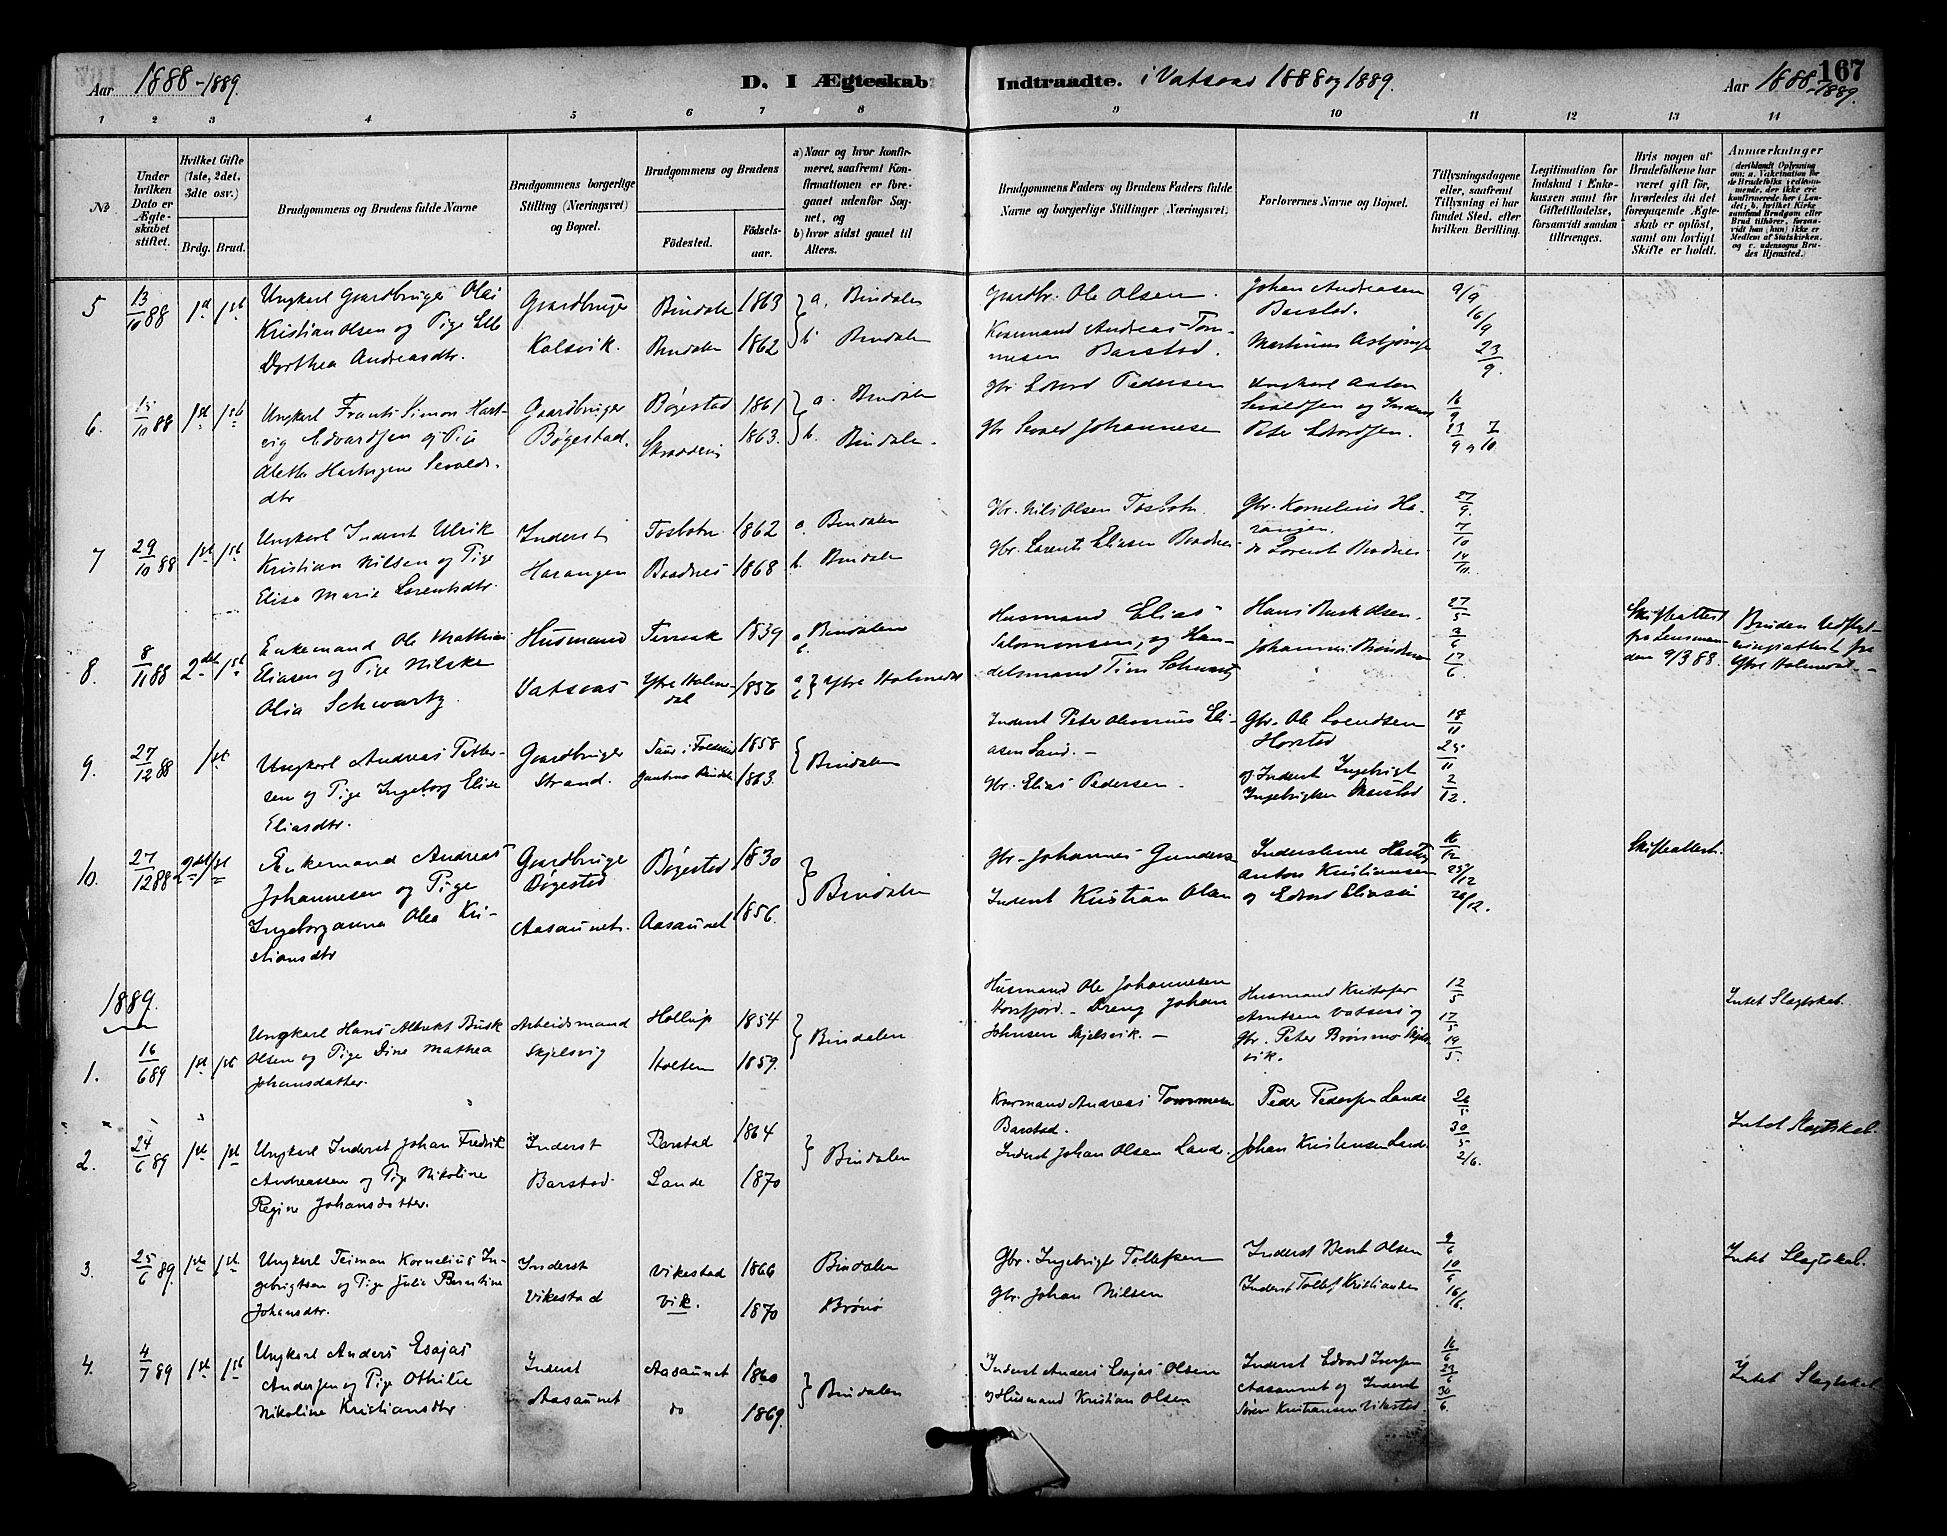 Aar 1888-1889.
D. I Ægteskab Indtraadte. i Vatsaas 1888 og 1889.
Aar 1888-1889.
167
1 2 3 4 5 6 7 8 9 10 11 12 13 14
No.
Under hvilken Dato er Ægteskabet stiftet.
Hvilket Gifte (1ste, 2det, 3die osv.)
Brdg. Brud.
Brudgommens og Brudens fulde Navne
Brudgommens borgerlige Stilling (Næringsvei) og Bopæl.
Brudgommens og Brudens
Fødested.
Fødselsaar.
a) Naar og hvor konfirmeret, saafremt Konfirmationen er foregaaet udenfor Sognet, og
b) hvor sidst gaaet til Alters.
Brudgommens Faders og Brudens Faders fulde Navne og borgerlige Stillinger (Næringsvei).
Forlovernes Navne og Bopæl.
Tillysningsdagene eller, saafremt Tillysning ei har fundet Sted, efter hvilken Bevilling.
Legitimation for Indskud i Enkekassen samt for Giftetilladelse, forsaavidt saadan tiltrænges.
Hvis nogen af Brudefolkene har været gift før, hvorledes da det foregaaende Ægteskab er opløst, samt om lovligt Skifte er holdt.
Anmærkninger
5 13/10 88 1st 1st
Ungkarl Gaardbruger Olai
Kristian Olsen og Pige
Dorthea Andreasdtr.
Gaardbruger
Kalsvik.
Bindalen 1863
Bindalen 1862
a. Bindalen
b. Bindalen
Gaardbr. Ole Olsen.
Andreas Tommesen Barstad.
Johan Andreasen
Barstad.
9/9
16/9
23/9.
6. 15/10 88 1st 1st
Ungkarl Frants Simon Hartvig Edvardsen og Pige
Alette Sevaldsdtr
Gaardbruger
Bøgestad.
Bøgestad 1861
1863.
a. Bindalen
b. Bindalen.
Gbr Edvard Pedersen
Gbr Sevald Johannesen
Ungkarl Anton
Sevaldsen og Inderst
Peter Edvardsen.
16/9
23/9 og 7/10
7 29/10 88 1st 1st
Ungkarl Inderst Ulrik
Kristian Nilsen og Pige
Elisa Marie Lorentsdtr.
Inderst
Harangen
Tosbotn 1862
Baadnes 1868
a. Bindalen
b. Bindalen
Gbr. Nils Olsen Tosbotn.
Gbr. Lorents Eliasen Baadnes
Gbr. Kornelius Harangen.
do Lorent Baadnes
27/9.
7/10
8. 8/11 88 2det 1st
Enkemand Ole Mathias
Eliasen og Pige
Olia Schwartz.
Husmand
Vatsaas
Terraak 1839
Ytre Holmedal 1856
a b. Bindalen
a b } Ytre Holmedal
Husmand Elias
Salomonsen, og Handelsmand Schwartz
Hans Busk Olsen.
Johannes
27/5
3/6
17/6
Skifteattest
fra Lensmanden 9/3 88.
Bruden
Ytre Holmedal
9. 27/12 88 1st
Ungkarl Andreas Pettersen og Pige Ingeborg Elise
Eliasdtr.
Gaardbruger
Strand.
1858
1863.
Bindalen
Inderst Peter Eliasen
Gbr. Elias Pedersen.
Gbr. Ole Svendsen
Horstad
og Inderst Ingebrigt
Ingebrigtsen
18/11
25/11
2/12.
10. 27/12 88 2det 1st
Enkemand Andreas
Johannesen og Pige
Ingeborganna Olea Kristiansdtr
Gaardbruger
Bøgestad
Aasaunet.
Bøgestad 1830
Aasaunet 1856.
Bindalen
Gbr. Johannes Gunders
Inderst Kristian Olsen
Indersterne
Anton Kristiansen
og Edvard Eliasen
16/12
25/12
26/12.
Skifteattest.
1889.
1. 16/6 89 1st 1st
Ungkarl Hans Albrikt Busk
Olsen og Pige Dine Mathea
Johansdatter.
Arbeidsmand
Skjelsvig
Hollup 1854
Holten 1859.
Bindalen
Husmand Ole Johannesen
Horsfjord. Dreng Johan
Johnsen Skjelsvik.
Husmand Kristofer
Arntsen Vatsaas og
Gbr. Peter Brønmo Skjelsvik.
12/5
17/5
19/5.
Intet Slægtskab.
2. 24/6 89 1st 1st
Ungkarl Inderst Johan Fredrik
Andreassen og Pige Nikoline
Regine Johansdatter.
Inderst
Barstad.
Barstad 1864
Lande 1870
Bindalen
Andreas Tommesen
Barstad.
Inderst Johan Olsen Lande.
Peder Pedersen Lande
Johan Kristensen Lande
26/5
30/5
2/6.
Intet Slægtskab.
3. 25/6 89. 1ste 1ste
Ungkarl Teiman Kornelius Ingebrigtsen og Pige Julie Berntine
Johansdtr.
Inderst
Vikestad
Vikestad 1866
Vik. 1870
Bindalen
Brønø
Gbr. Ingebrigt Tollefsen
Gbr. Johan Nilsen
Inderst Bent Olsen
Inderst Tollef Kristiansen
9/6
10/6
16/6.
Intet Slægtskab.
4. 4/7 89 1st 1st
Ungkarl Anders Esajas
Andersen og Pige Othilie
Nikoline Kristiansdtr.
Inderst
Aasaunet
Aasaunet 1860
do 1869.
Bindalen
Inderst Anders Esajas Olsen
og Husmand Kristian Olsen
Inderst Edvard Iversen
Aasaunet og Inderst
Søren Kristiansen Vikestad.
16/6
23/6
30/6.
Intet Slægtskab.